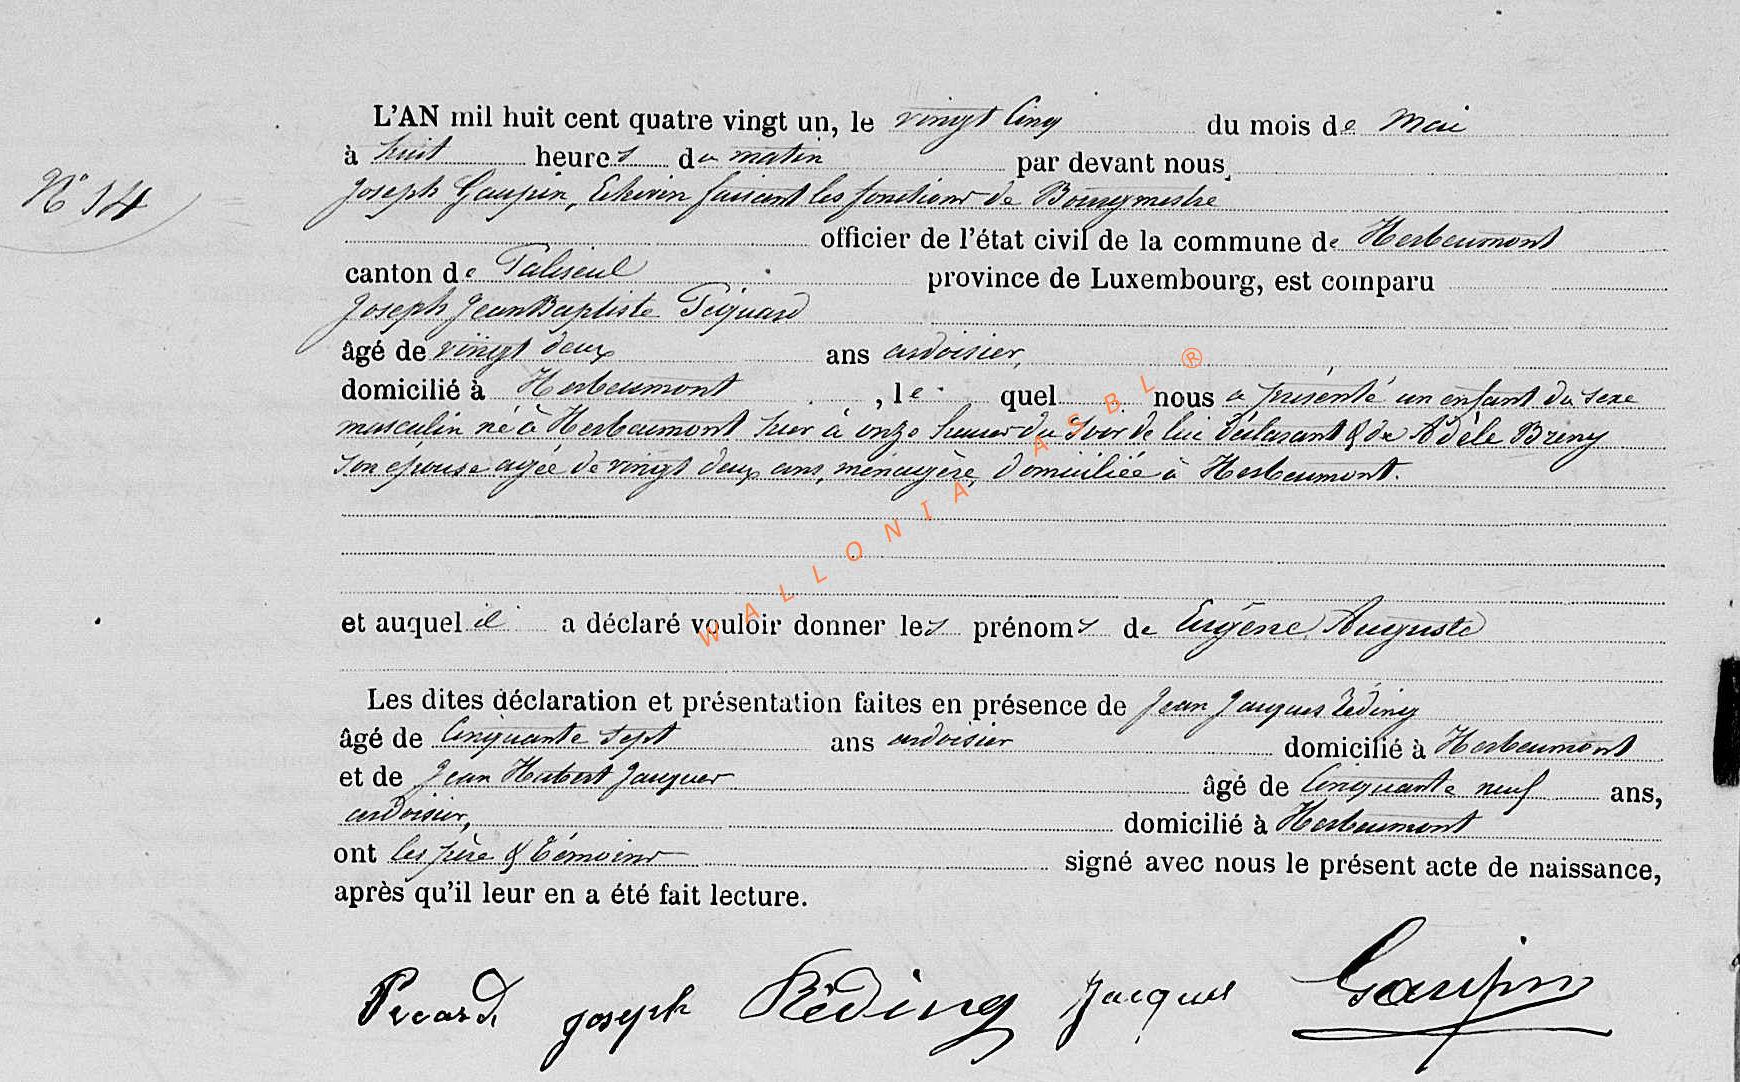 L'AN mil huit cent quatre vingt un, le vingt Cinq du mois de Mai
à huit heures du matin par devant nous,
N° 14
Joseph Gaupin, Echevin faisant les fonctions de Bourgmestre
officier de l'état civil de la commune de Herbeumont
canton de Paliseul province de Luxembourg, est comparu
Joseph Jean Baptiste Piquard
âgé de vingt deux ans ardoisier,
domicilié à Herbeumont, lequel nous a présenté un enfant du sexe
masculin né à Herbeumont hier à onze heures du soir de lui déclarant & de Adèle Breny
son épouse agée de vingt deux ans, ménagère, domiciliée à Herbeumont.
WALLONIA ASBL ®
et auquel il a déclaré vouloir donner les prénoms de Eugène Auguste
Les dites déclaration et présentation faites en présence de Jean Jacques Réding
âgé de Cinquante sept ans ardoisier domicilié à Herbeumont
et de Jean Hubert Jacques âgé de Cinquante neuf ans,
ardoisier, domicilié à Herbeumont
ont les père & témoins signé avec nous le présent acte de naissance,
après qu'il leur en a été fait lecture.
Picard Joseph Rèding Jacques Gaupin